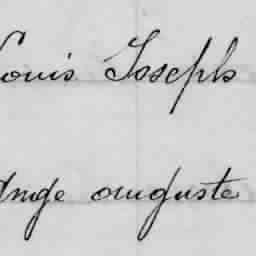 Louis Joseph
Ange auguste